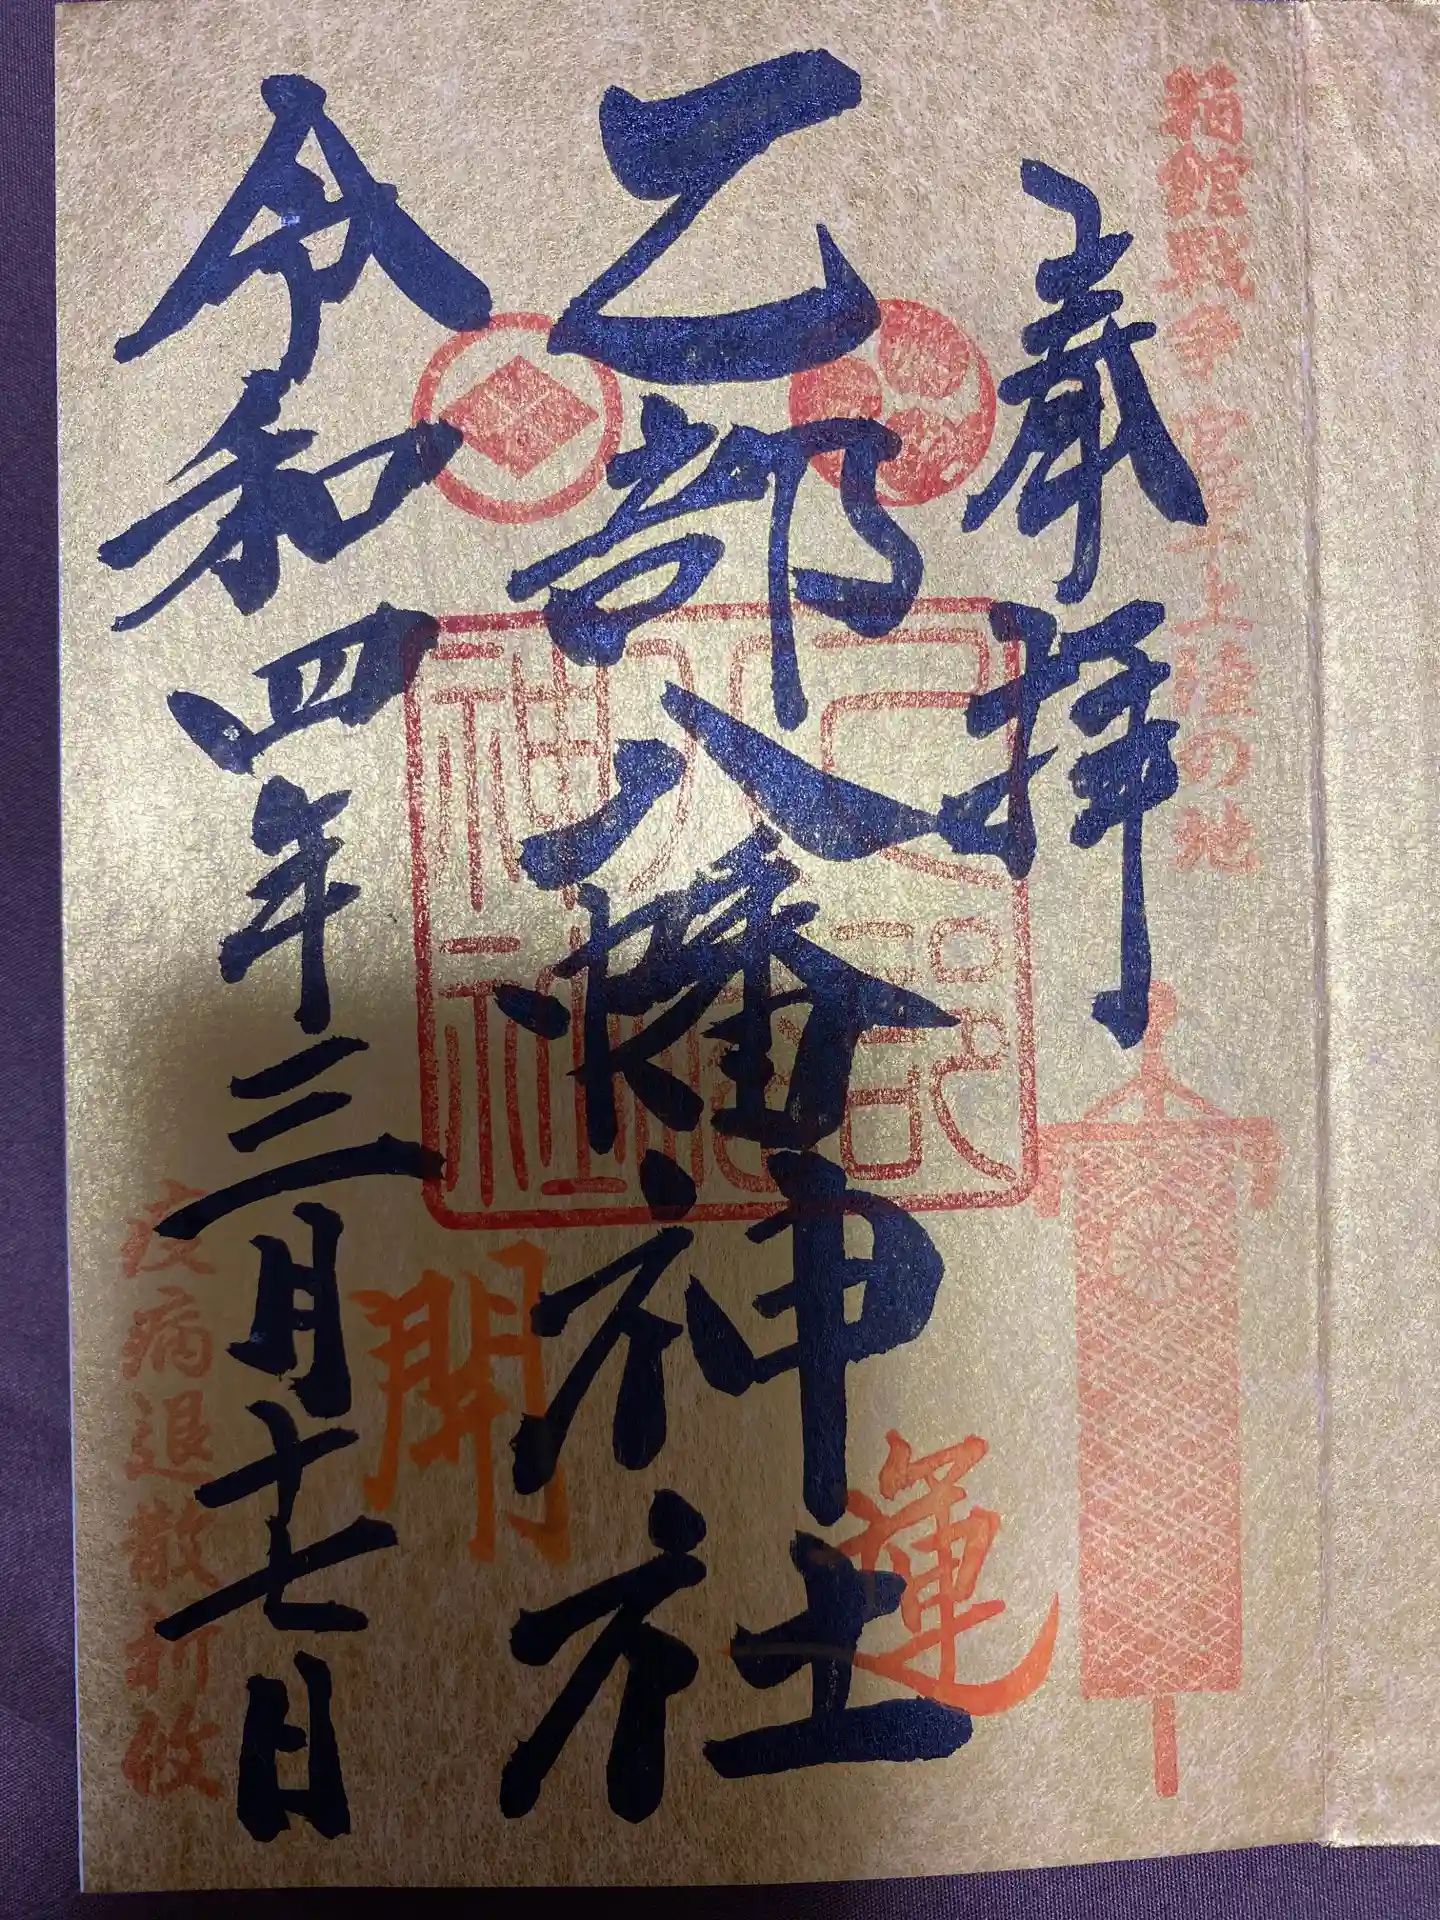 箱館戦争官軍上陸の地
奉拝
乙部八幡神社
乙部八幡神社
開運
令和四年三月十七日
疫病退散祈攸